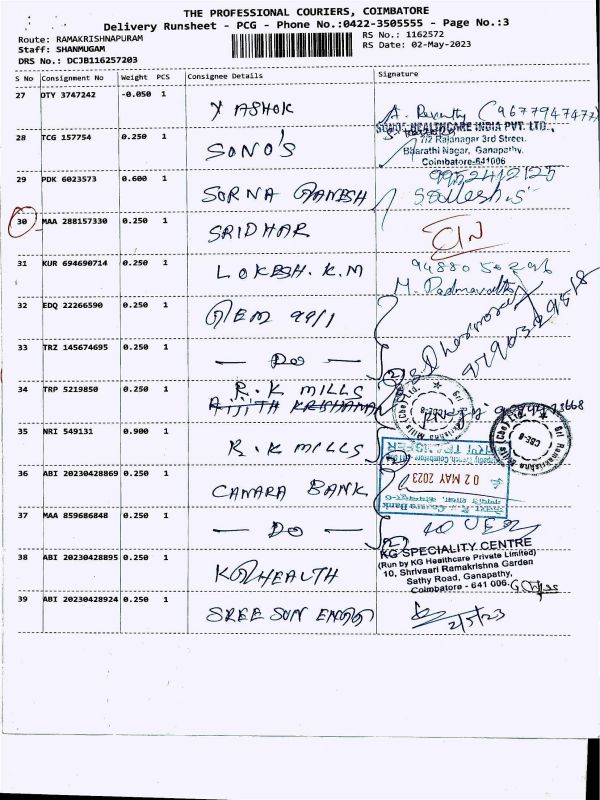 THE PROFESSIONAL COURIERS, COIMBATORE
Delivery Runsheet - PCG - Phone No.:0422-3505555 - Page No.:3
Route: RAMAKRISHNAPURAM
Staff: SHANMUGAM
DRS No.: DCJB116257203
RS No.: 1162572
RS Date: 02-May-2023
S No Consignment No Weight PCS Consignee Details Signature
27 DTY 3747242 -0.050 1 ASHOK
A. Revathy (9677947477)
28 TCG 157754 0.250 1 SONO'S
SONOS HEALTHCARE INDIA PVT. LTD.,
7/2 Rajanagar 3rd Street,
Bharathi Nagar, Ganapathy,
Coimbatore-641006
29 PDK 6023573 0.600 1 SORNA GANESH
9952412125
30 MAA 288157330 0.250 1 SRIDHAR
31 KUR 694690714 0.250 1 LOKESH.K.M
M. Padmavathy
32 EDQ 22266590 0.250 1 GEM 99/1
33 TRZ 145674695 0.250 1 — Do —
34 TRP 5219850 0.250 1 R.K MILLS
35 NRI 549131 0.900 1 R.K MILLS
36 ABI 20230428869 0.250 1 CANARA BANK
02 MAY 2023
37 MAA 859686848 0.250 1 — Do —
38 ABI 20230428895 0.250 1 KG HEALTH
KG SPECIALITY CENTRE
(Run by KG Healthcare Private Limited)
10, Shrivaari Ramakrishna Garden
Sathy Road, Ganapathy,
Coimbatore - 641 006.
39 ABI 20230428924 0.250 1 SREE SUN ENGG
2/5/23